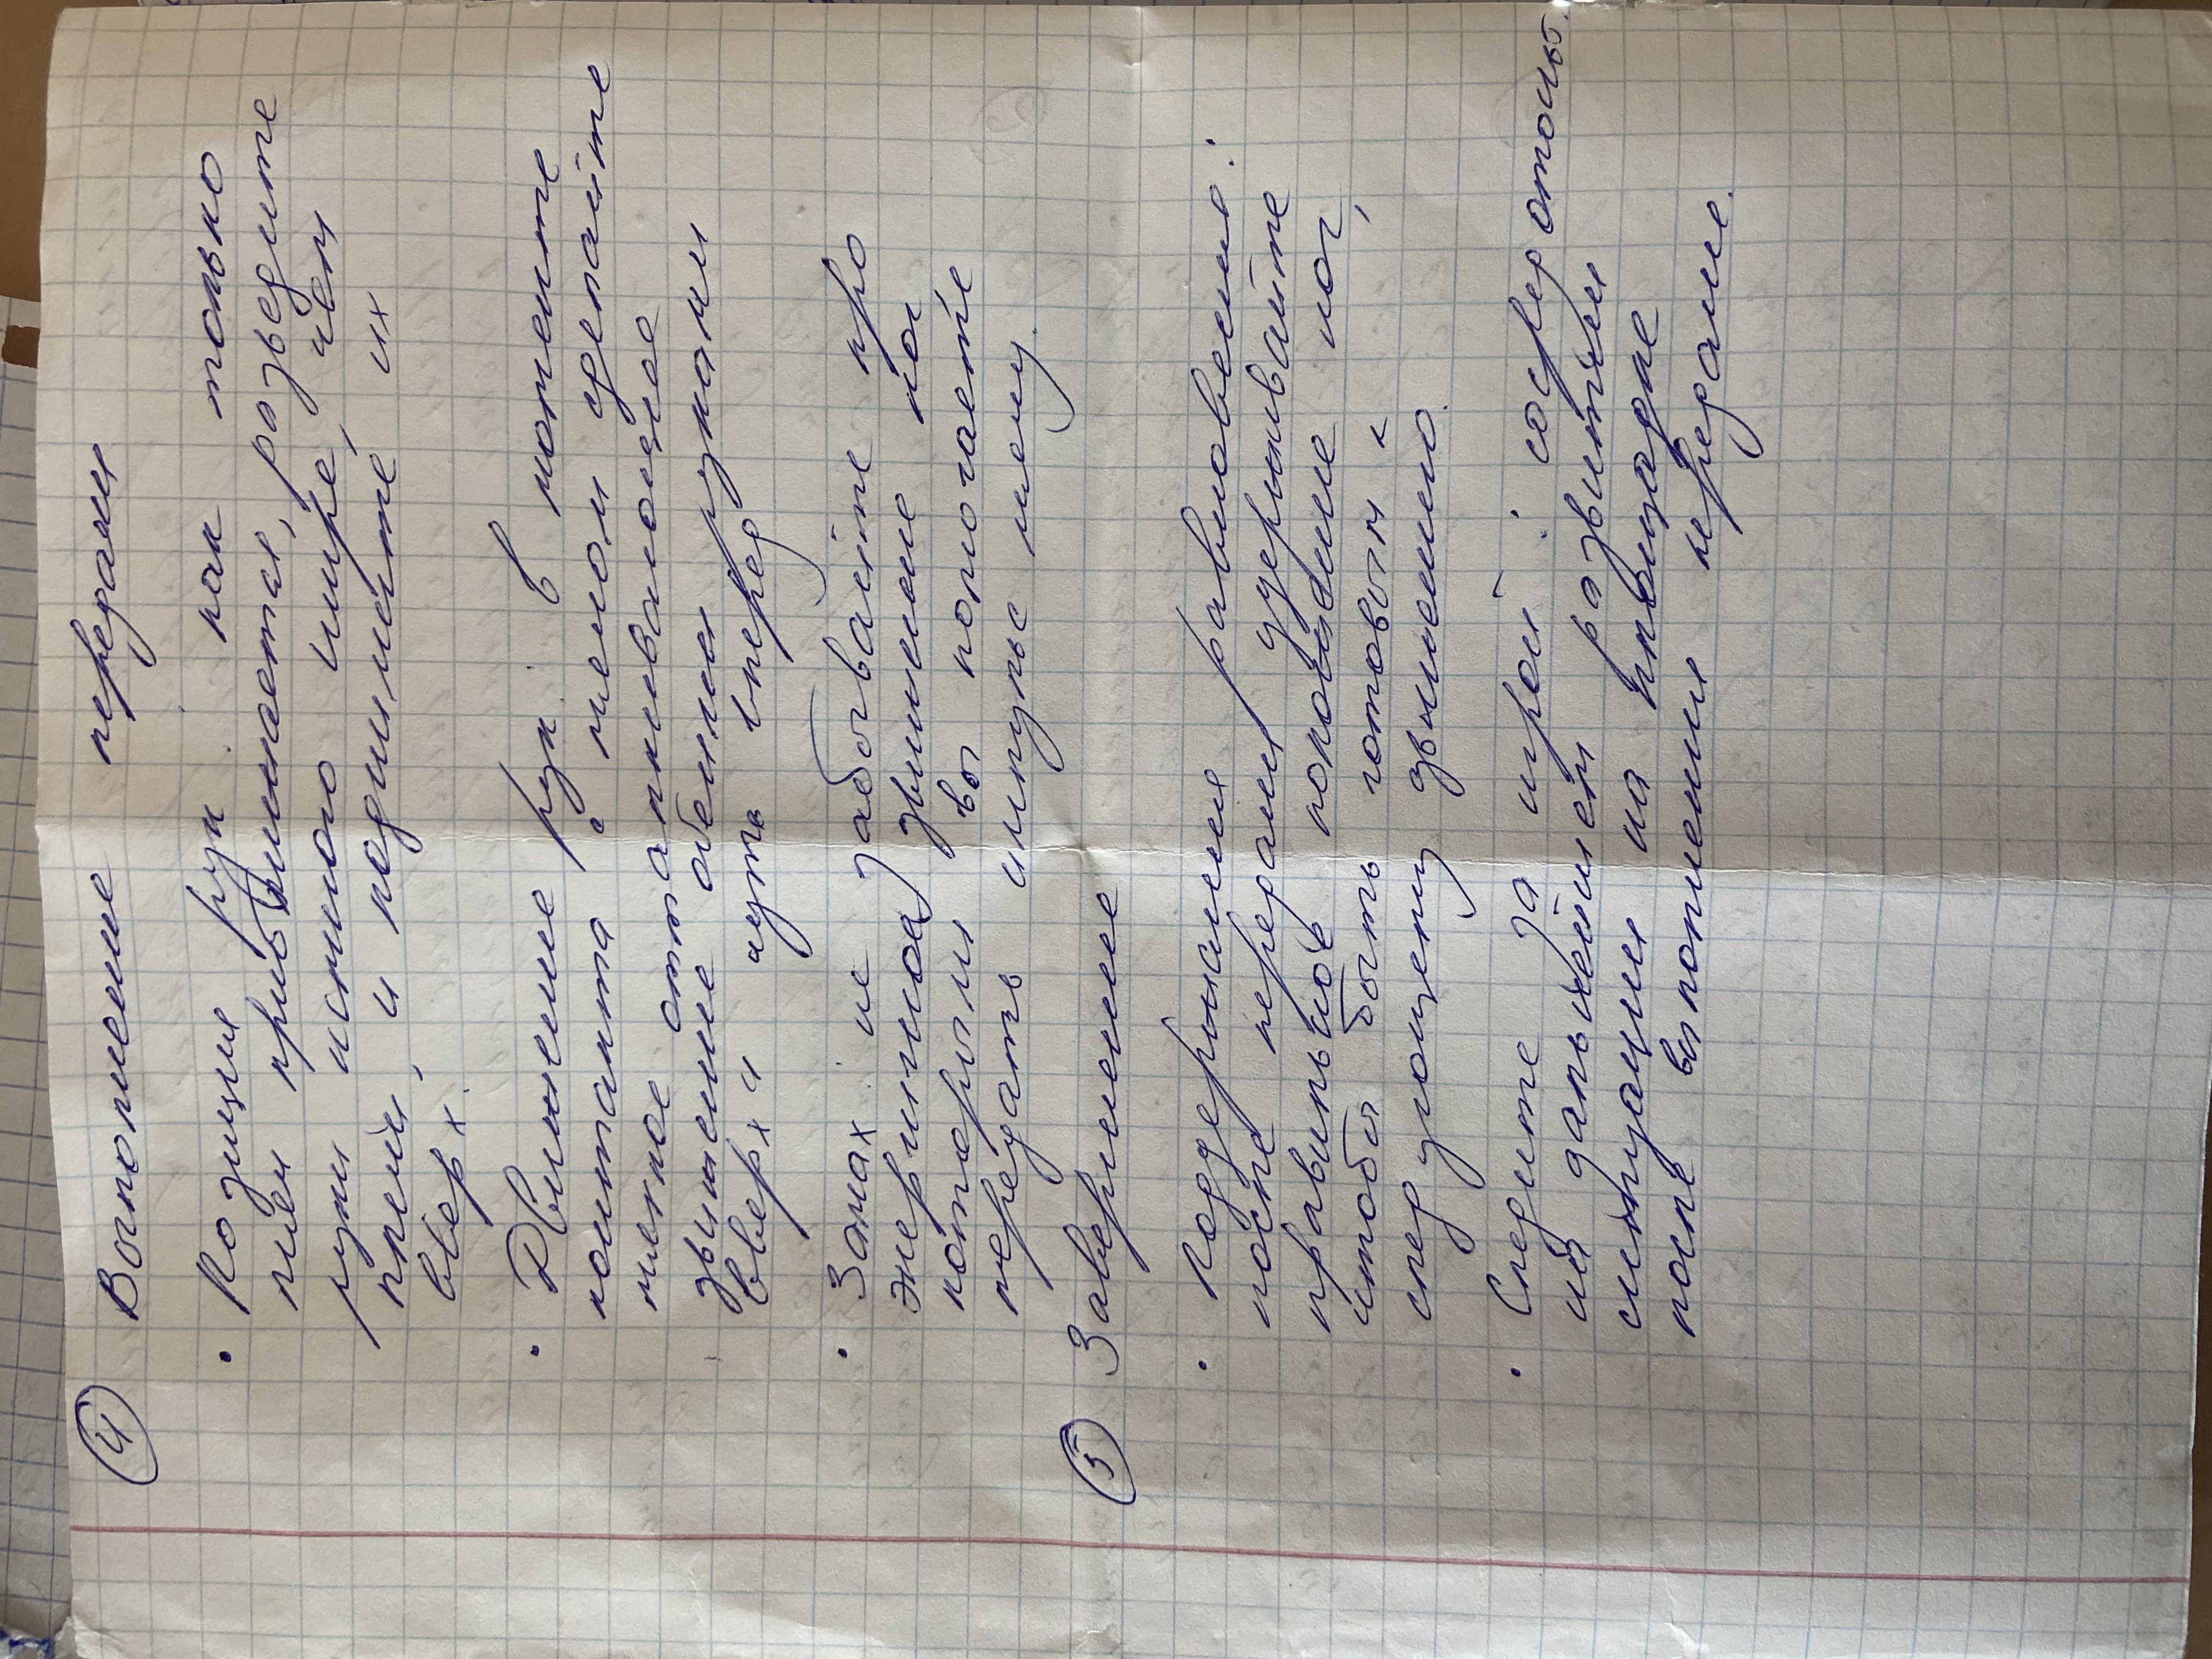 ④ Выполнение передачи
• Позиция рук: как только
мяч приближается, разведите
руки немного шире, чем
плечи, и поднимите их
вверх.
• Движение рук: в моменте
контакта с мячом сделайте
мягкое отталкивающее
движение обеими руками
вверх и чуть вперед
• Замах: не забывайте про
энергичное движение ног
которым вы помогаете
передать импульс мячу.
⑤ Завершение
• Поддержания равновесия:
после передачи удерживайте
правильное положение ног,
чтобы быть готовым к
следующему движению.
• Следите за игрой: сосредоточьт.
на дальнейшем развитии
ситуации на площадке
после выполнения передачи.